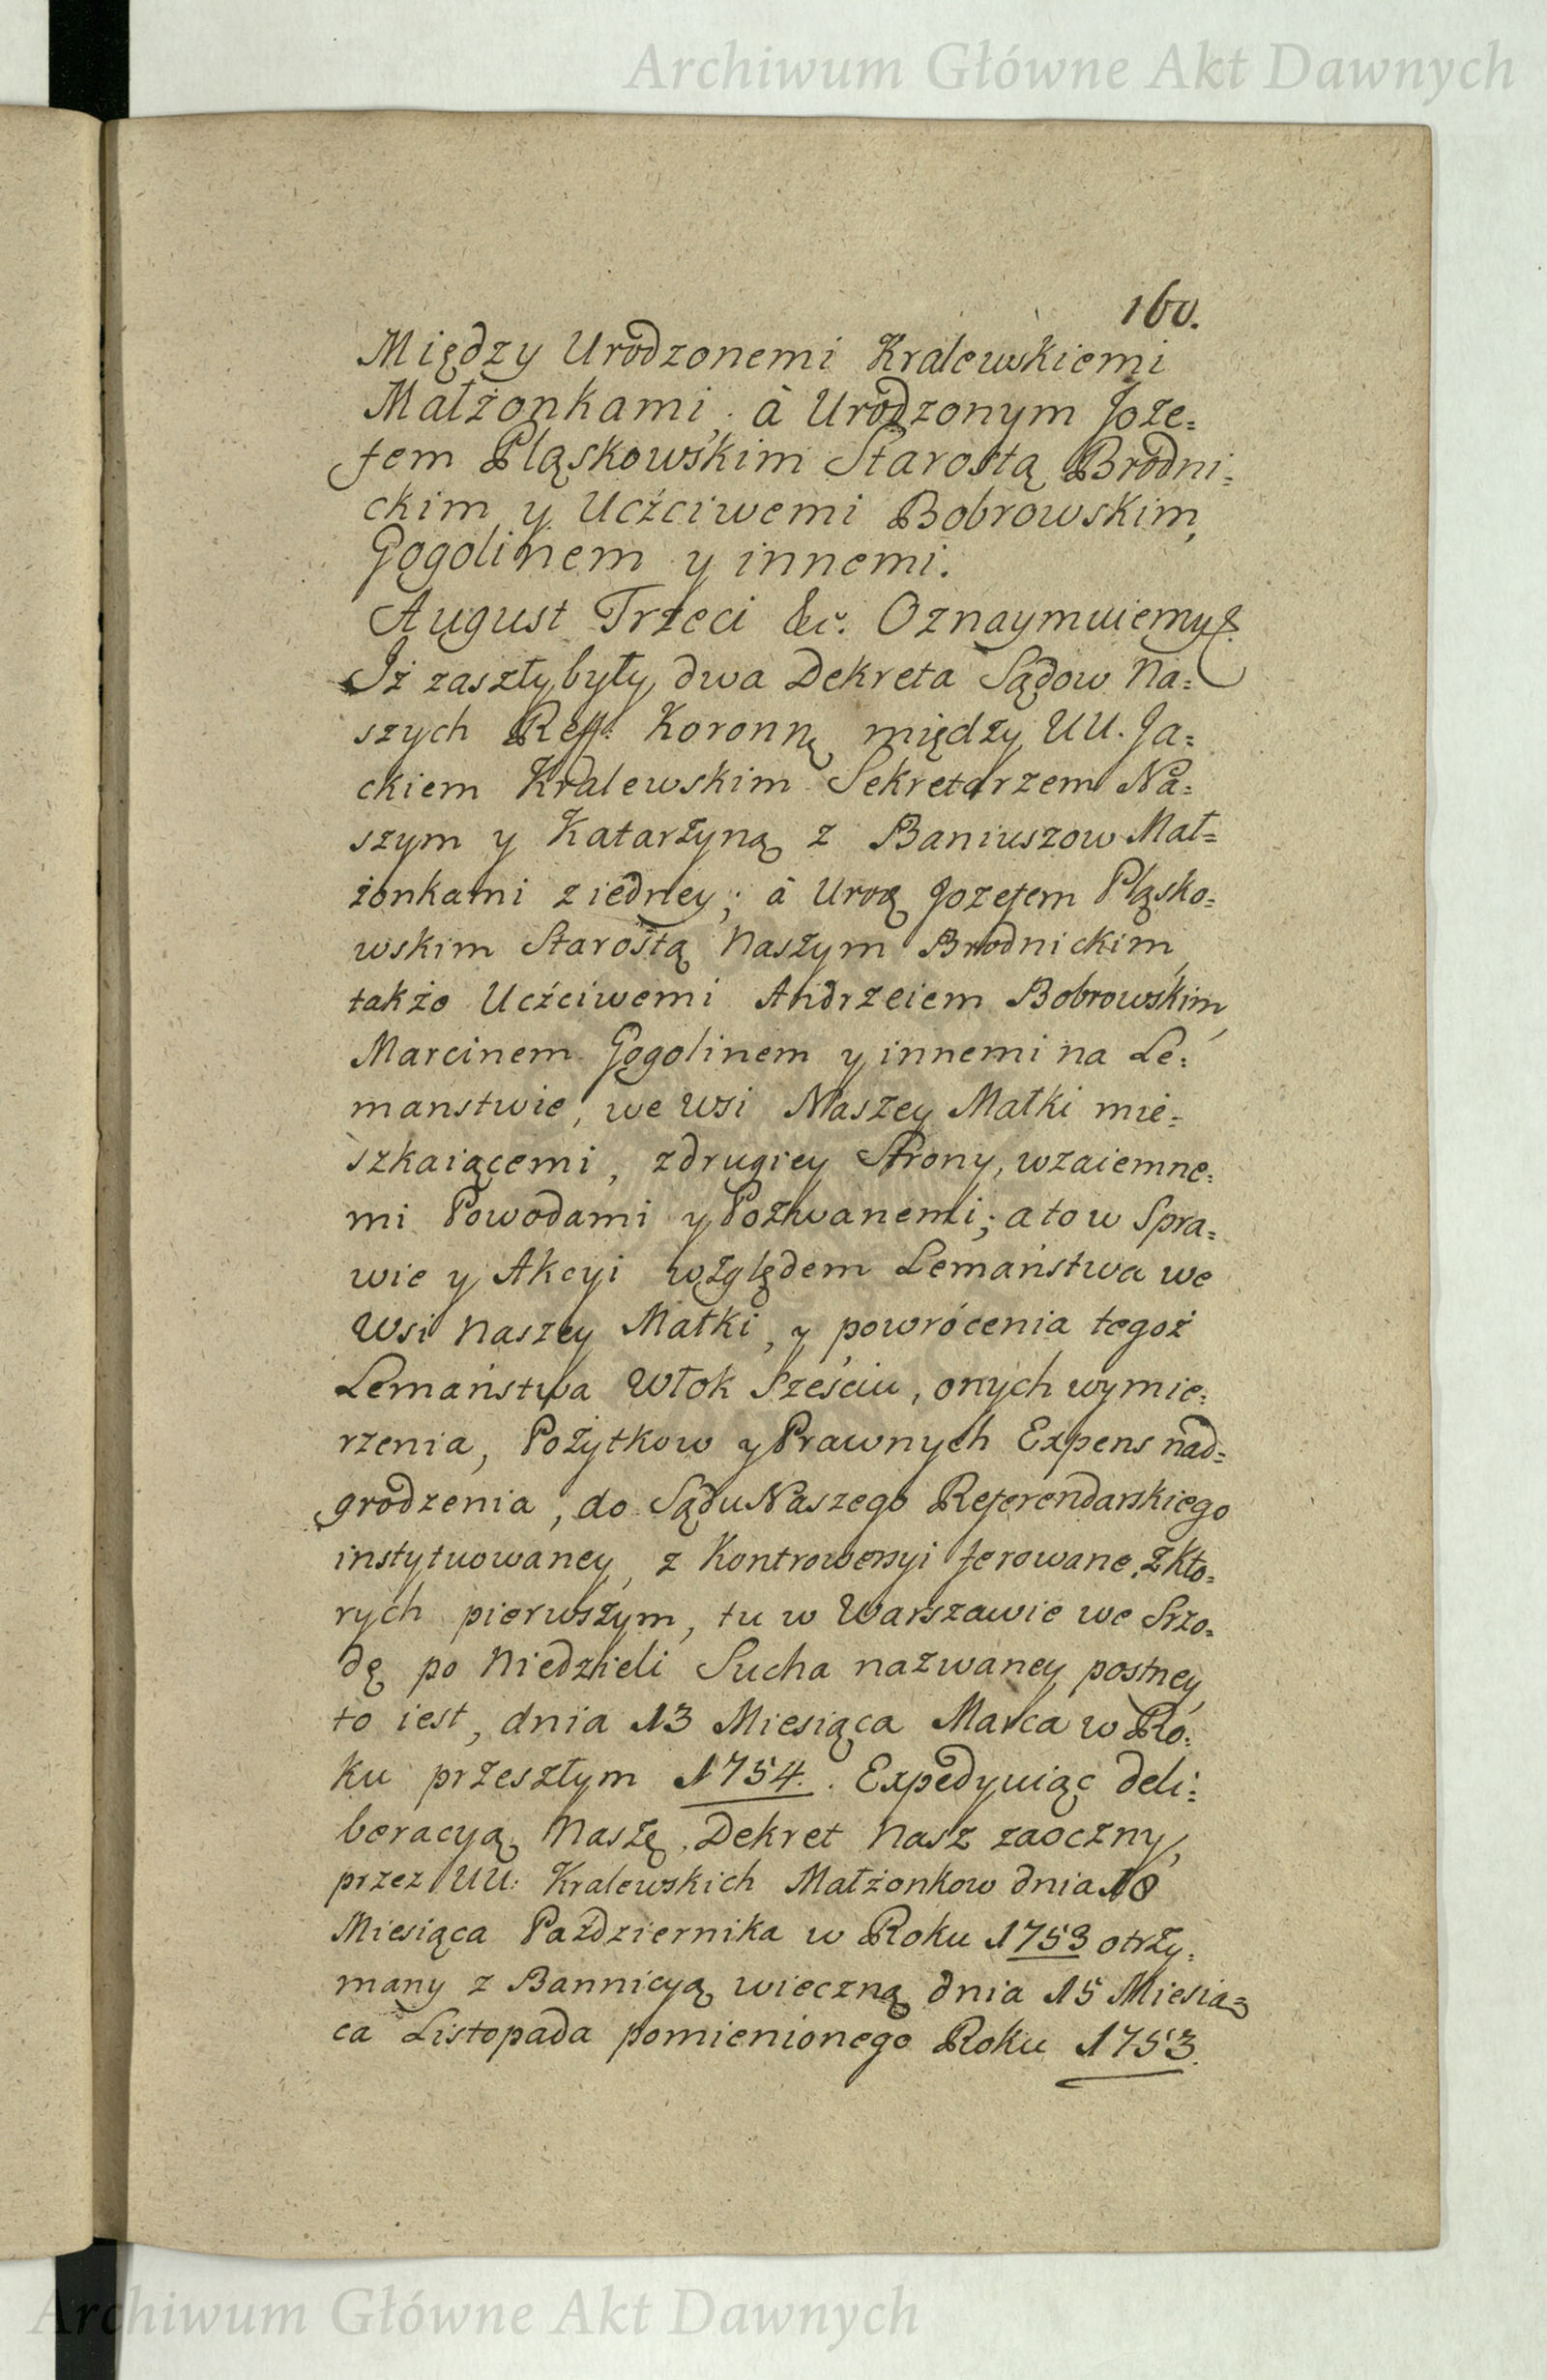 Archiwum Główne Akt Dawnych
160.
Między Urodzonemi Kralewskiemi
Małżonkami, à Urodzonym Joze=
fem Pląskowskim Starostą Brodni=
ckim y Ucźciwemi Bobrowskim,
Gogolinem y innemi.
August Trzeci &c. Oznaymuiemy &.
Iż zaszły były dwa Dekreta Sądow Na=
szych Reff: Koronn: między UU. Ja=
ckiem Kralewskim Sekretarzem Na=
szym y Katarzyną z Baniuszow Mał=
żonkami z iedney; à Urod Jozefem Pląsko=
wskim Starostą Naszym Brodnickim,
także Ucźciwemi Andrzeiem Bobrowskim,
Marcinem Gogolinem y innemi na Le=
manstwie, we Wsi Naszey Małki mie=
szkaiącemi, z drugiey Strony, wzaiemne=
mi Powodami y Pozwanemi; a to w Spra=
wie y Akcyi względem Lemaństwa we
Wsi Naszey Małki, y powrócenia tegoż
Lemaństwa Włok Sześciu, onych wymie=
rzenia, Pożytkow y Prawnych Expens nad=
grodzenia, do Sądu Naszego Referendarskiego
instytuowaney, z Kontrowersyi ferowane. Z kto=
rych pierwszym, tu w Warszawie we Srzo=
dę po Niedzieli Sucha nazwaney postney,
to iest, dnia 13 Miesiąca Marca w Ro=
ku przeszłym 1754. Expedyuiąc deli=
beracyą Naszę, Dekret Nasz zaoczny,
przez UU: Kralewskich Małżonkow dnia 18
Miesiąca Października w Roku 1753 otrzy=
many z Bannicyą wieczną dnia 15 Miesią=
ca Listopada pomienionego Roku 1753.
Archiwum Główne Akt Dawnych